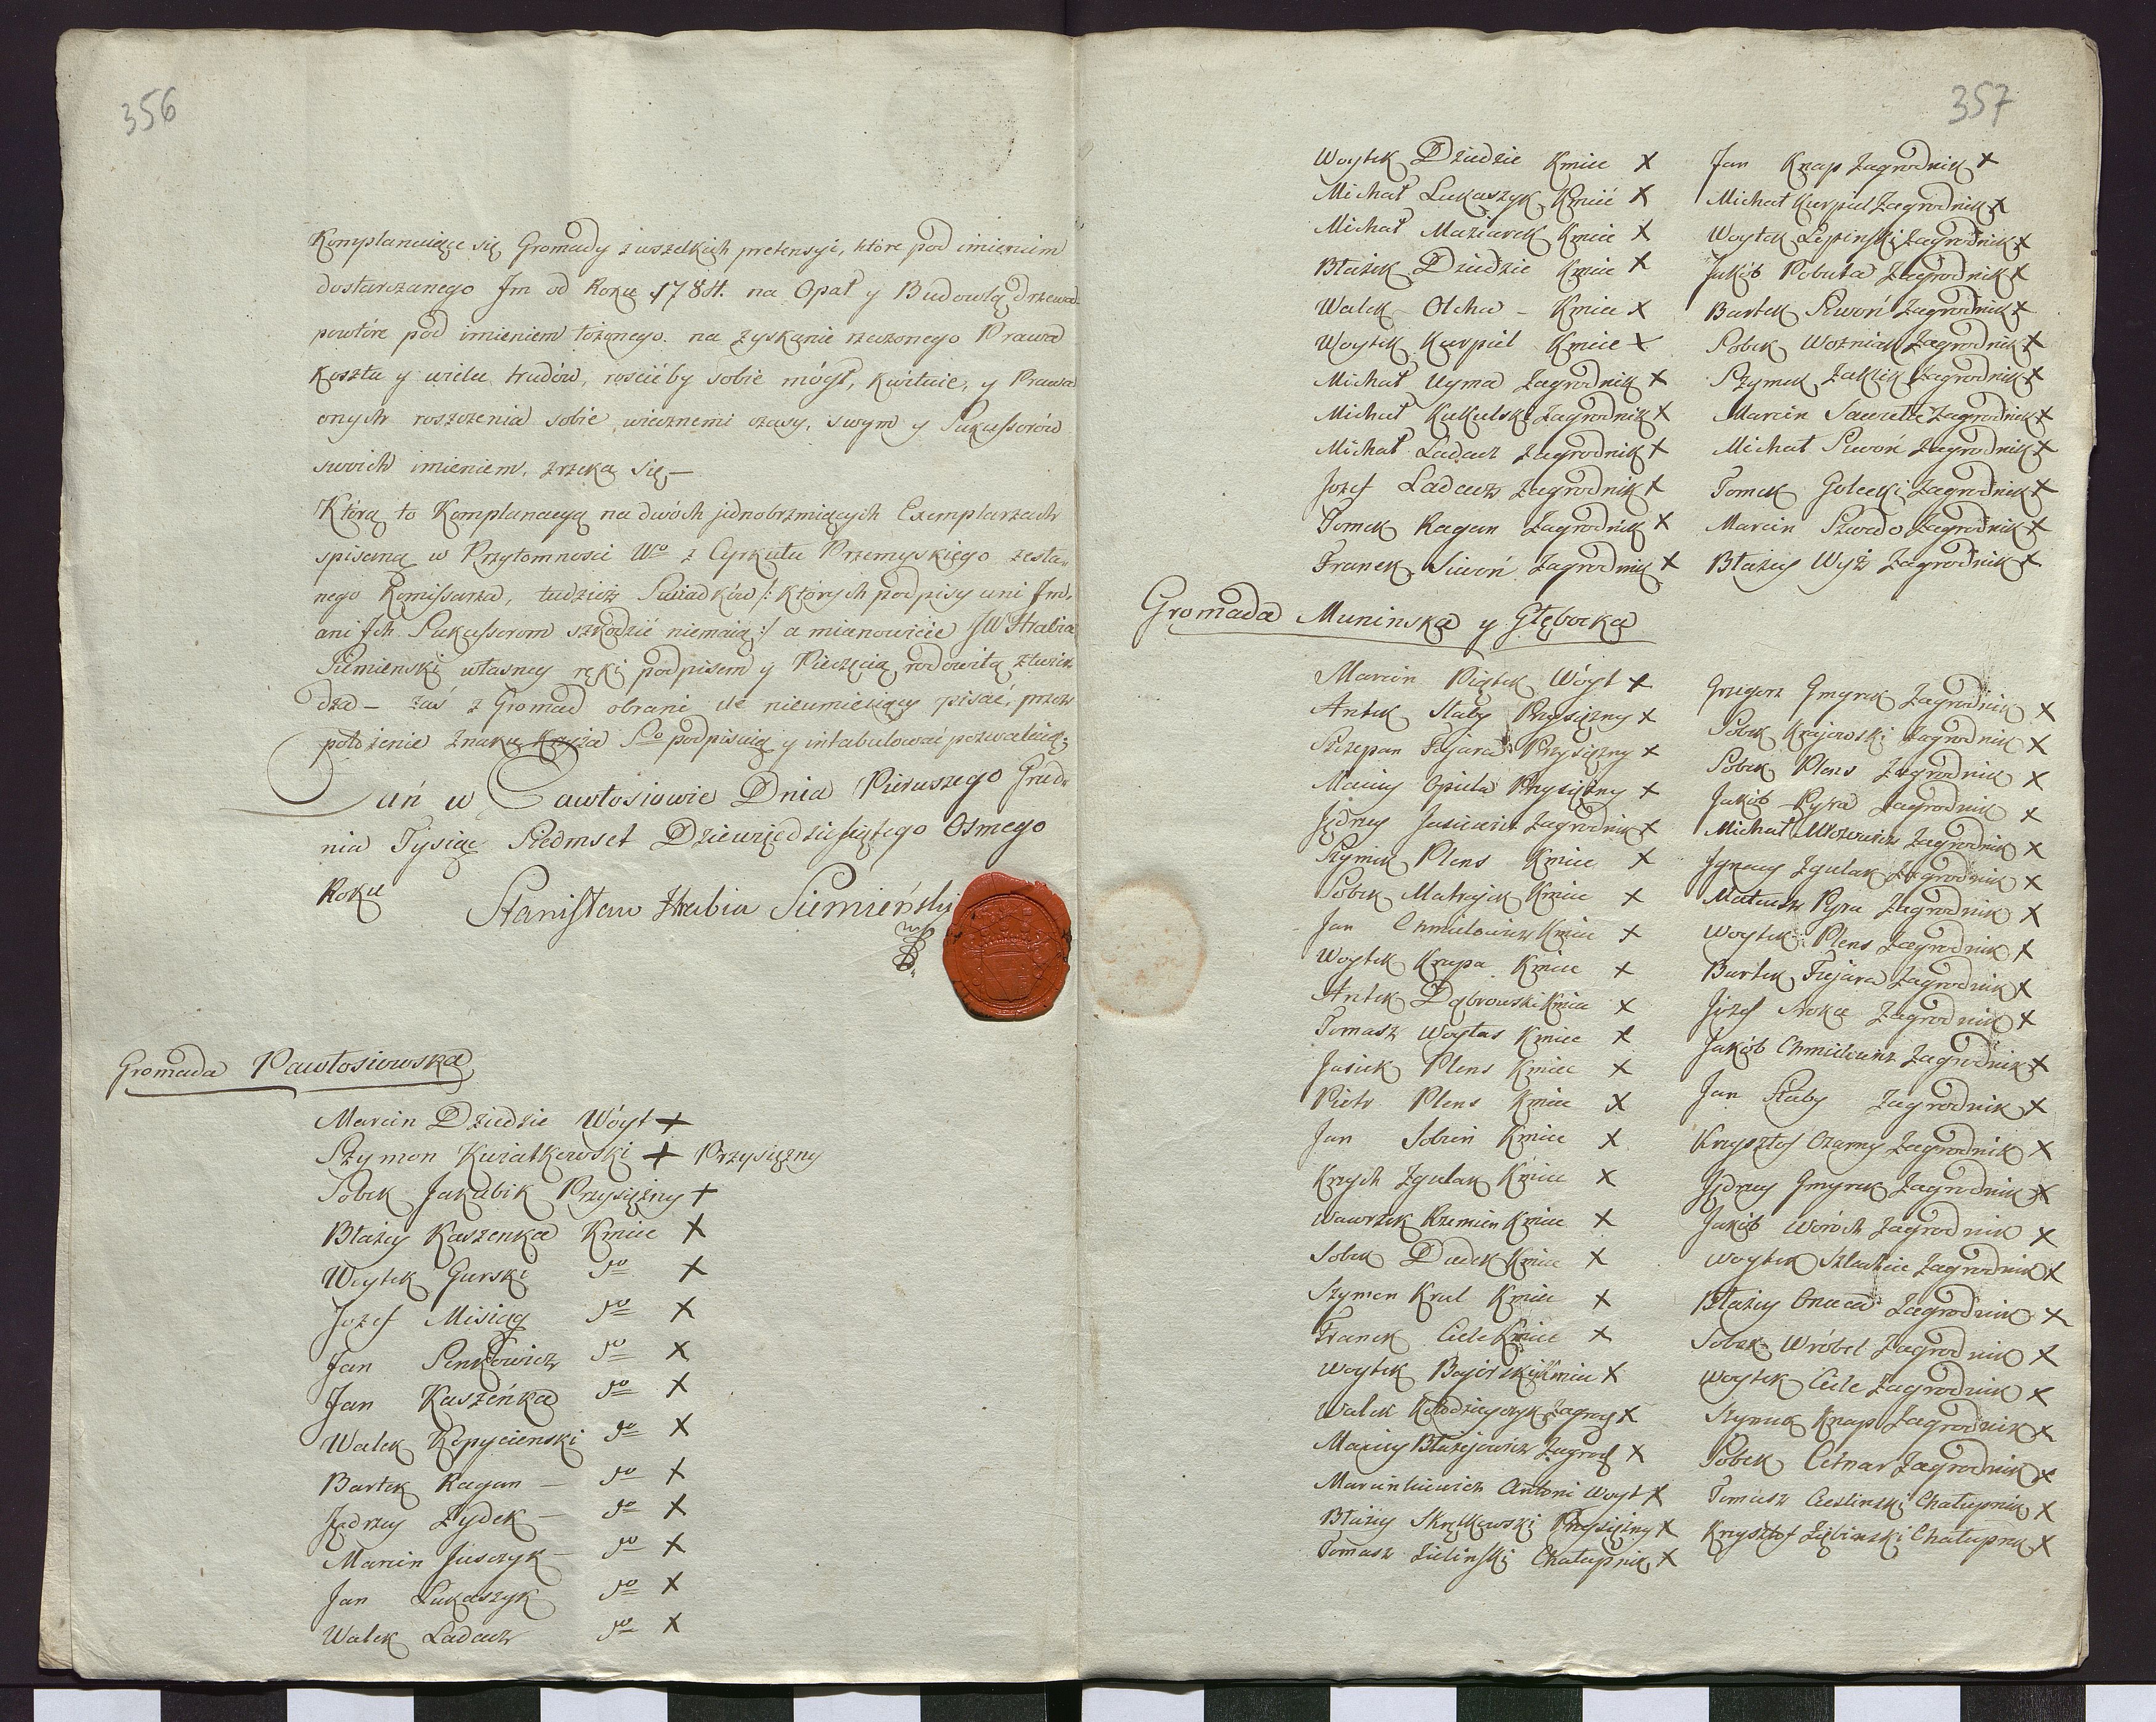 356
Komplanuiące się Gromady z wszelkich pretensyi, które pod imieniem
dostarczanego Im od Roku 178 na Opał y Budowlą drzewa
powtóre pod imieniem łożonego na zyskanie rzeczonego Prawa
Kosztu y wielu trudów, rościćby sobie mógł, kwituie, y Prawa
onych roszczenia sobie wiecznemi czasy, swym y Sukussorów
swoich imieniem, zrzeka się —
Którą to Komplanacyą na dwóch jednobrzmiących Exemplarzach
spisaną w Przytomności Wo z Cyrkułu Przemyskiego zesła-
nego Komissarza, tudzież Swiadków /: których podpisy ani Im,
ani Ich Sukussorom szkodzić niemaią :/ a mianowicie JW Hrabia
Siemienski własney ręki podpisem y Pieczęcią rodowitą stwier
dza — zaś z Gromad obrani ile nieumieiący pisać, przez
położenie Znaku Krzyża Sto podpisuią y intabulować pozwalaią;
Dań w Pawłosiowie Dnia Pierwszego Grud-
nia Tysiąc Siedmset Dziewiędziesiątego Osmego
Roku
Stanisław Hrabia Siemieński
Gromada Pawłosiowska
Marcin Dziedzic Wóyt +
Szymon Kwiatkowski + Przysiężny
Sobek Jakubik Przysiężny +
Błażey Kaszenka Kmiec X
Woytek Gurski do X
Jozef Misiąg do X
Jan Senkowicz do X
Jan Kaszeńka do X
Walek Kopycienski do X
Bartek Kagan — do X
Jędrzey Zydek — do X
Marcin Juszczyk — do X
Jan Łukaszyk do X
Walek Ladacz do X
357
Woytek Dziedzic Kmiec X
Michał Łukaszyk Kmieć X
Michał Maziarek Kmiec X
Błażek Dziedzic Kmiec X
Walek Olcha — Kmiec X
Woytek Kurpiel Kmiec X
Michał Uyma Zagrodnik X
Michał Kukulski Zagrodnik X
Michał Ladacz Zagrodnik X
Jozef Ladacz Zagrodnik X
Tomek Kagan Zagrodnik X
Franek Siwoń Zagrodnik X
Jan Knap Zagrodnik X
Michał Kurpiel Zagrodnik X
Woytek Lepinski Zagrodnik X
Jakób Pobuta Zagrodnik X
Bartek Siwoń Zagrodnik X
Sobek Wozniak Zagrodnik X
Szymek Zaklik Zagrodnik X
Marcin Zagrodnik X
Michał Siwoń Zagrodnik X
Tomek Golecki Zagrodnik X
Marcin Szwado Zagrodnik X
Błażey Wyż Zagrodnik X
Gromada Muninska y Głęboka
Marcin Piątek Wóyt X
Antek Słaby Przysiężny X
Szczepan Fejara Przysiężny X
Maciey Opiela Przysiężny X
Jędrzey Jasiewicz Zagrodnik X
Szymek Plens Kmiec X
Sobek Matyjek Kmiec X
Jan Chmielowicz Kmiec X
Woytek Krupa Kmiec X
Antek Dąbrowski Kmiec X
Tomasz Woytas Kmiec X
Jasiek Plens Kmiec X
Pietr Plens Kmiec X
Jan Sobień Kmiec X
Krzych Zgulak Kmiec X
Wawrzek Krzemien Kmiec X
Sobek Dudek Kmiec X
Szymon Krul Kmiec X
Franek Ciele Kmiec X
Woytek Bajorski Kmiec X
Walek Kołodzieyczyk Zagrod X
Maciey Błażejowicz Zagrod X
Marcinkiewicz Antoni Woyt X
Błażey Skrętkowski Przysiężny X
Tomasz Zielinski Chałupnik X
Grzegorz Gmyrek Zagrodnik X
Sobek Krajewski Zagrodnik X
Sobek Plens Zagrodnik X
Jakób Pyra Zagrodnik X
Michał Zagrodnik X
Jgnacy Zgulak Zagrodnik X
Mateusz Pyra Zagrodnik X
Woytek Plens Zagrodnik X
Bartek Fiejara Zagrodnik X
Józef Sroka Zagrodnik X
Jakób Chmielowicz Zagrodnik X
Jan Słaby Zagrodnik X
Krzysztof Czarny Zagrodnik X
Jędrzey Gmyrek Zagrodnik X
Jakób Woroch Zagrodnik X
Woytek Zagrodnik X
Błażey Zagrodnik X
Sobek Wróbel Zagrodnik X
Woytek Ciele Zagrodnik X
Szymek Knap Zagrodnik X
Sobek Cetnar Zagrodnik X
Tomasz Cieslinski Chałupnik X
Krzysztof Zięбinski Chałupnik X